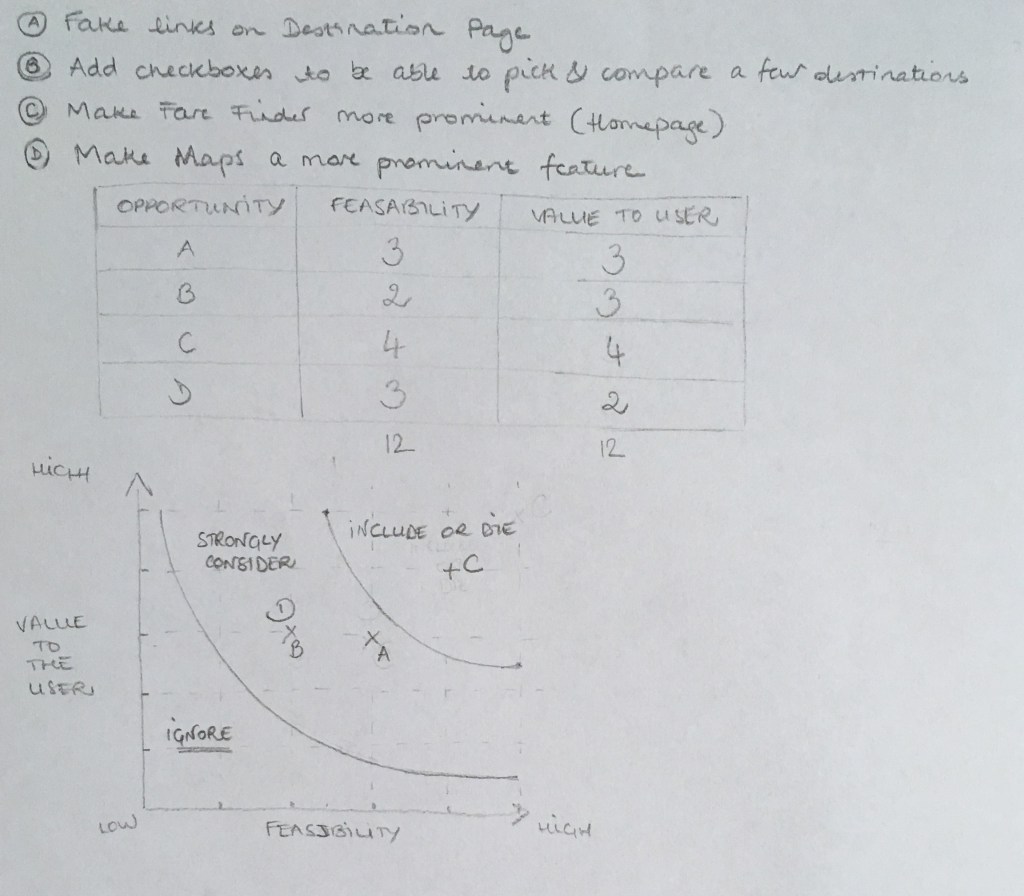 A Fake links on Destination Page
B Add checkboxes to be able to pick & compare a few destinations
C Make Fare Finder more prominent (Homepage)
D Make Maps a more prominent feature
OPPORTUNITY FEASABILITY VALUE TO USER
A 3 3
B 2 3
C 4 4
D 3 2
12 12
HIGH
INCLUDE OR DIE
STRONGLY
CONSIDER
+C
D
VALUE
TO
THE
USER
x
B
x
A
IGNORE
LOW
FEASIBILITY
HIGH